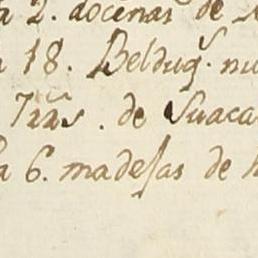 a 2. docenas de
a 18. Belduqs. nu
de Suaca
a 6. madejas de h